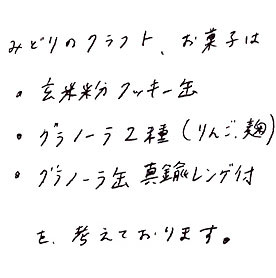 みどりのクラフト、お菓子は
・玄米粉クッキー缶
・グラノーラ2種(りんご、麹)
・グラノーラ缶 真鍮レンゲ付
を、考えております。